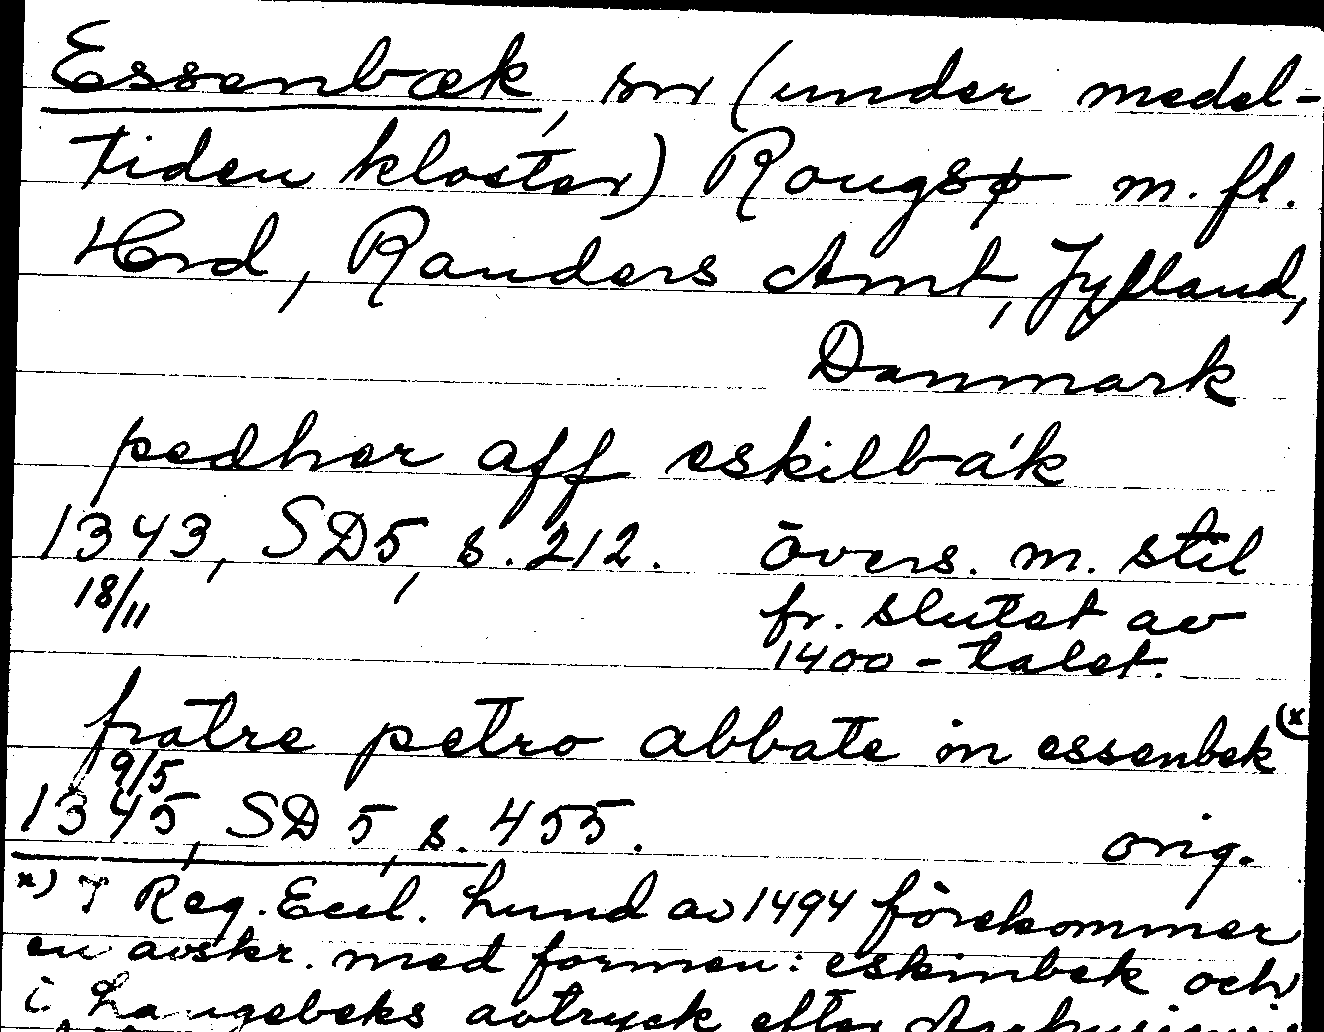 Essenbæk, sn (under medel-
tiden kloster) Rougsø m. fl.
Hrd, Randers Amt, Jylland,
Danmark
pedher aff eskilbǻk
1343, SD5, s. 212. övers. m. stil
18/11 fr. slutet av
1400-talet.
fratre petro abbate in essenbek (x
9/5
1345, SD 5, s. 455. orig.
x) I Reg. Eccl. Lund av 1494 förekommer
en avskr. med formen: eskinbek och
i Langebeks avtryck efter